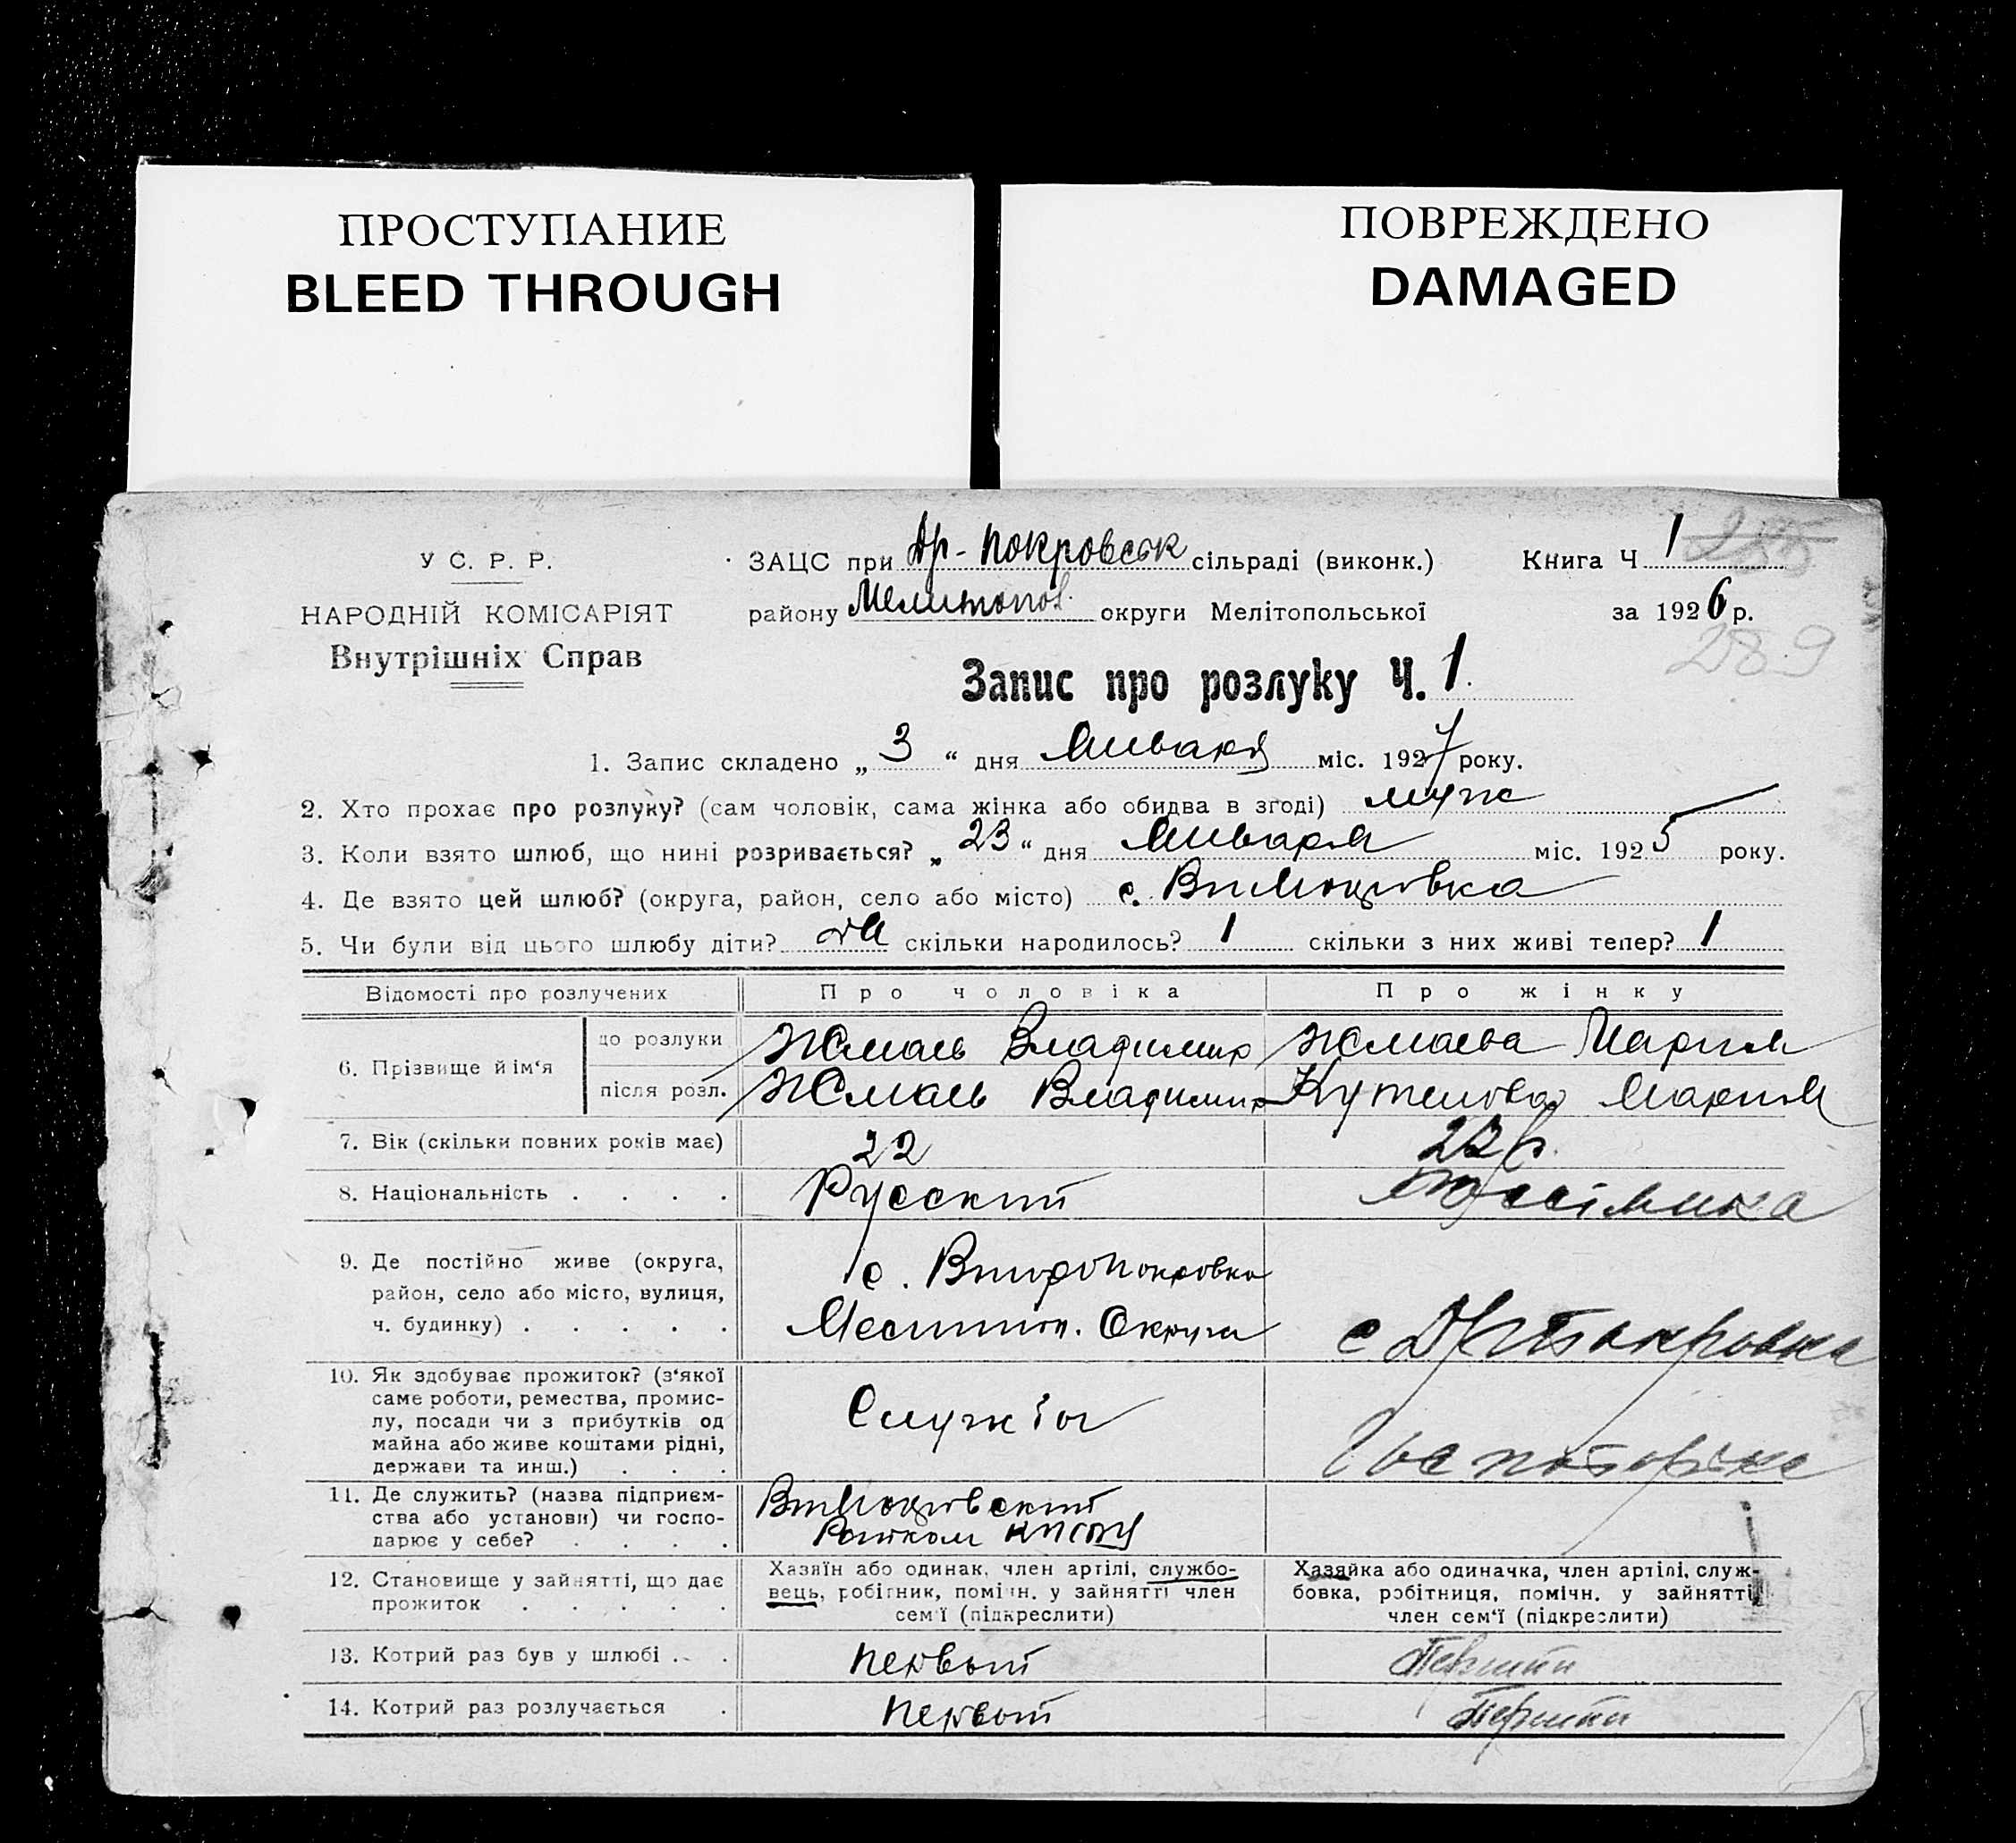 ПРОСТУПАНИЕ
BLEED THROUGH
ПОВРЕЖДЕНО
DAMAGED
У С. Р. Р.
НАРОДНІЙ КОМІСАРІЯТ
Внутрішніх Справ
ЗАЦС при Др-Покровськ сільраді (виконк.)
району Мелитопол. округи Мелітопольської
Книга Ч 1
за 1926 р.
289
Запис про розлуку Ч. 1
1. Запис складено „ 3 “ дня Января міс. 1927 року.
2. Хто прохає про розлуку? (сам чоловік, сама жінка або обидва в згоді) муж
3. Коли взято шлюб, що нині розривається? „ 23 “ дня Января міс. 1925 року.
4. Де взято цей шлюб? (округа, район, село або місто) с.
5. Чи були від цього шлюбу діти? да скільки народилось? 1 скільки з них живі тепер? 1
Відомості про розлучених Про чоловіка Про жінку
6. Прізвище й ім‘я
до розлуки Жмаев Владимир Жмаева Мария
після розл. Жмаев Владимир Кутепова Мария
7. Вік (скільки повних років має) 22
8. Національність . . . . Русский
9. Де постійно живе (округа, район, село або місто, вулиця, ч. будинку) . . . . .
с. Второпокровка
Мелитоп. Округа
с Др Покровка
10. Як здобуває прожиток? (з‘якої
саме роботи, ремества, промис-
лу, посади чи з прибутків од
майна або живе коштами рідні,
держави та инш.) . . .
11. Де служить? (назва підприєм-
ства або установи) чи госпо-
дарює у себе? . . . .
Райком
12. Становище у зайнятті, що дає
прожиток . . . . .
Хазяїн або одинак, член артілі, службо-
вець, робітник, помічн. у зайнятті член
сем‘ї (підкреслити)
Хазяйка або одиначка, член артілі, служ-
бовка, робітниця, помічн. у зайнятті,
член сем‘ї (підкреслити)
13. Котрий раз був у шлюбі . . первый Перший
14. Котрий раз розлучається . первый Перший